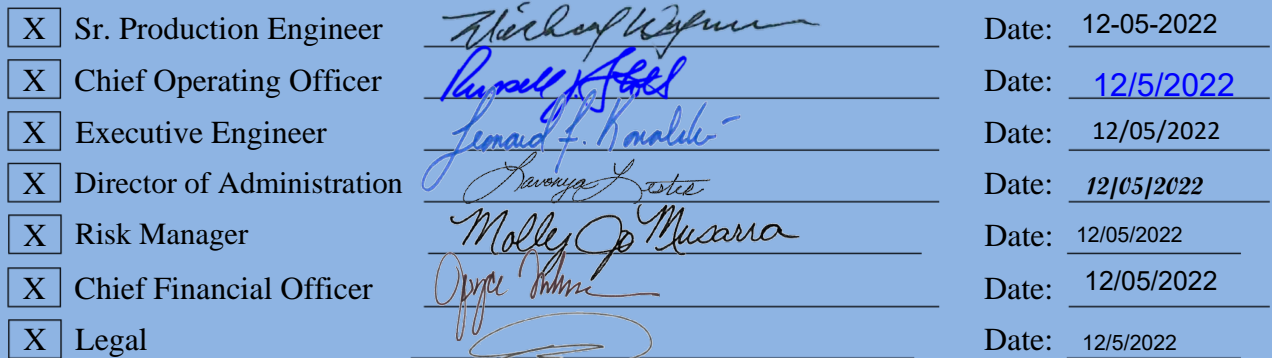 X Sr. Production Engineer Michael Date: 12-05-2022
X Chief Operating Officer Russell Date: 12/5/2022
X Executive Engineer Leonard Date: 12/05/2022
X Director of Administration Lavonya Date: 12/05/2022
X Risk Manager Molly Jo Musarra Date: 12/05/2022
X Chief Financial Officer Date: 12/05/2022
X Legal Date: 12/5/2022